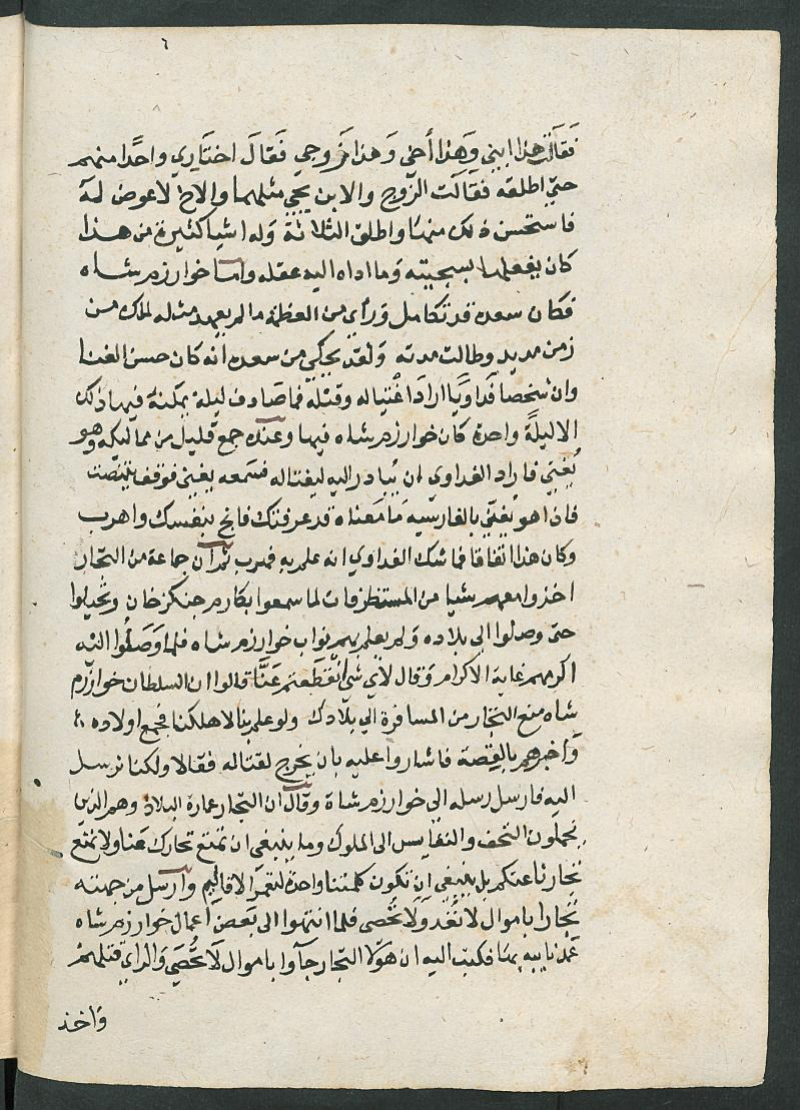 ٦
فَقَالَت هذا ابني وَهذا أخي وَهذا زَوجي فَقَالَ اختَاري واحدًا منهم
حتى اطلقه فقَالَت الزّوج والابن يجي مثلهما والاخ لا عوض له
فاستحسن ذلك منهَا واطلق الثلاثة وَله اشيا كثيرة من هذا
كان يفعلها بسجيته وَما اداه اليه عقله وَامَا خوارزم شاه
فكان سعده قد تكامل وَرأي من العظمة ما لم يعهد مثله لملك من
زمن مديد وطالت مدته وَلقد يحكي من سعده انه كان حسن الغنا
وان شخصا فداويًا ارَادَ اغتياله وقتله فما صَادف ليلة يمكنه فيها ذلك
الا ليلةً واحدة كان خوارزم شاه فيها وعنده جمع قليل من مماليكه وهو
يُغني فاراد الفداوي ان يُبادر اليه ليغتاله فسَمعه يغني فوقف يتنصت
فاذا هو يغني بالفارسيه مَا مَعناه قد عرفتك فانج بنفسك واهرب
وكان هذا اتفاقا فما شك الفداوي انه علم به فهرب ثم ان جماعة من التجار
اخذوا معهم شيا من المستظرفات لما سمعوا بمكارم جنكزخان وتحيلوا
حتى وصلوا الى بلاده وَلم يعلم بهم نواب خوارزم شاه فلما وَصَلُوا اليه
اكرمهم غاية الاكرام وَقال لأي شي انقطعتم عَنّا قالوا ان السلطان خوارزم
شاه منع التجار من المسافرة الي بلادك ولو علم بنا لاهلكنا فجمع اولاده
وَاخبرهم بالقِصة فاشاروا عليه بان يخرج لقتاله فقال لا ولكنا نرسل
اليه فارسل رسله الي خوارزم شاة وقال ان التجار عمارة البلاد وهم الذين
يحملون التحف والنفايس الى الملوك وما ينبغي ان تمنع تجارك عنا ولا نمنع
تجارنا عنكم بل ينبغي ان تكون كلمتنا واحدة لتعمر الاقاليم وارسل من جهته
تجارا باموال لا تُعَد وَلا تُحصى فلما انتهوا الى بَعض أعمال خوارزم شاه
عمد نايبه بها فكتب اليه ان هولا التجار جآوا باموال لا تحُصَي وَالراي قتلهم
وَاخذ